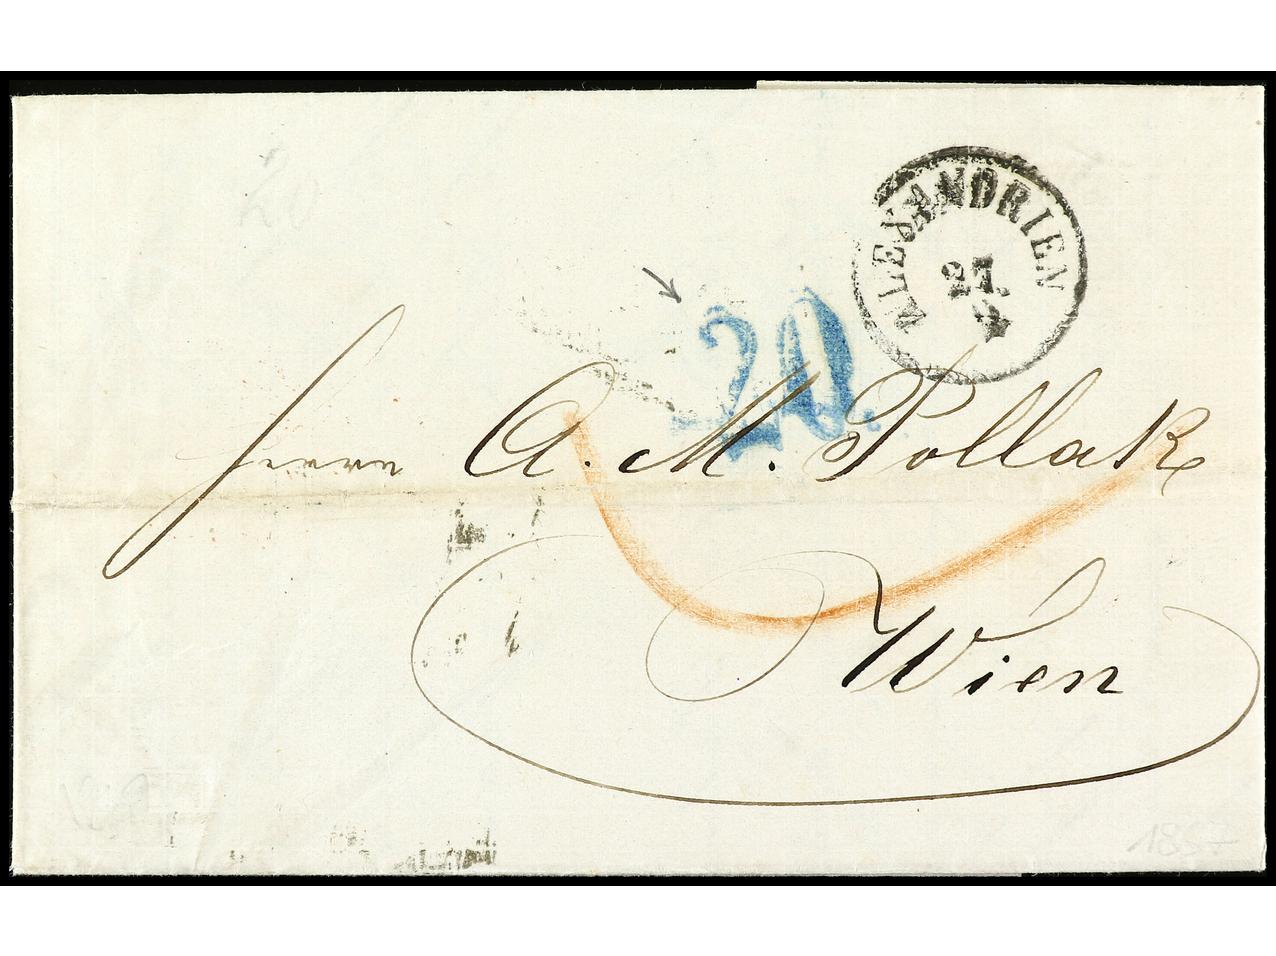 20
ALEXANDRIEN
27.
20.
Herrn A. M. Pollak
Wien
1867